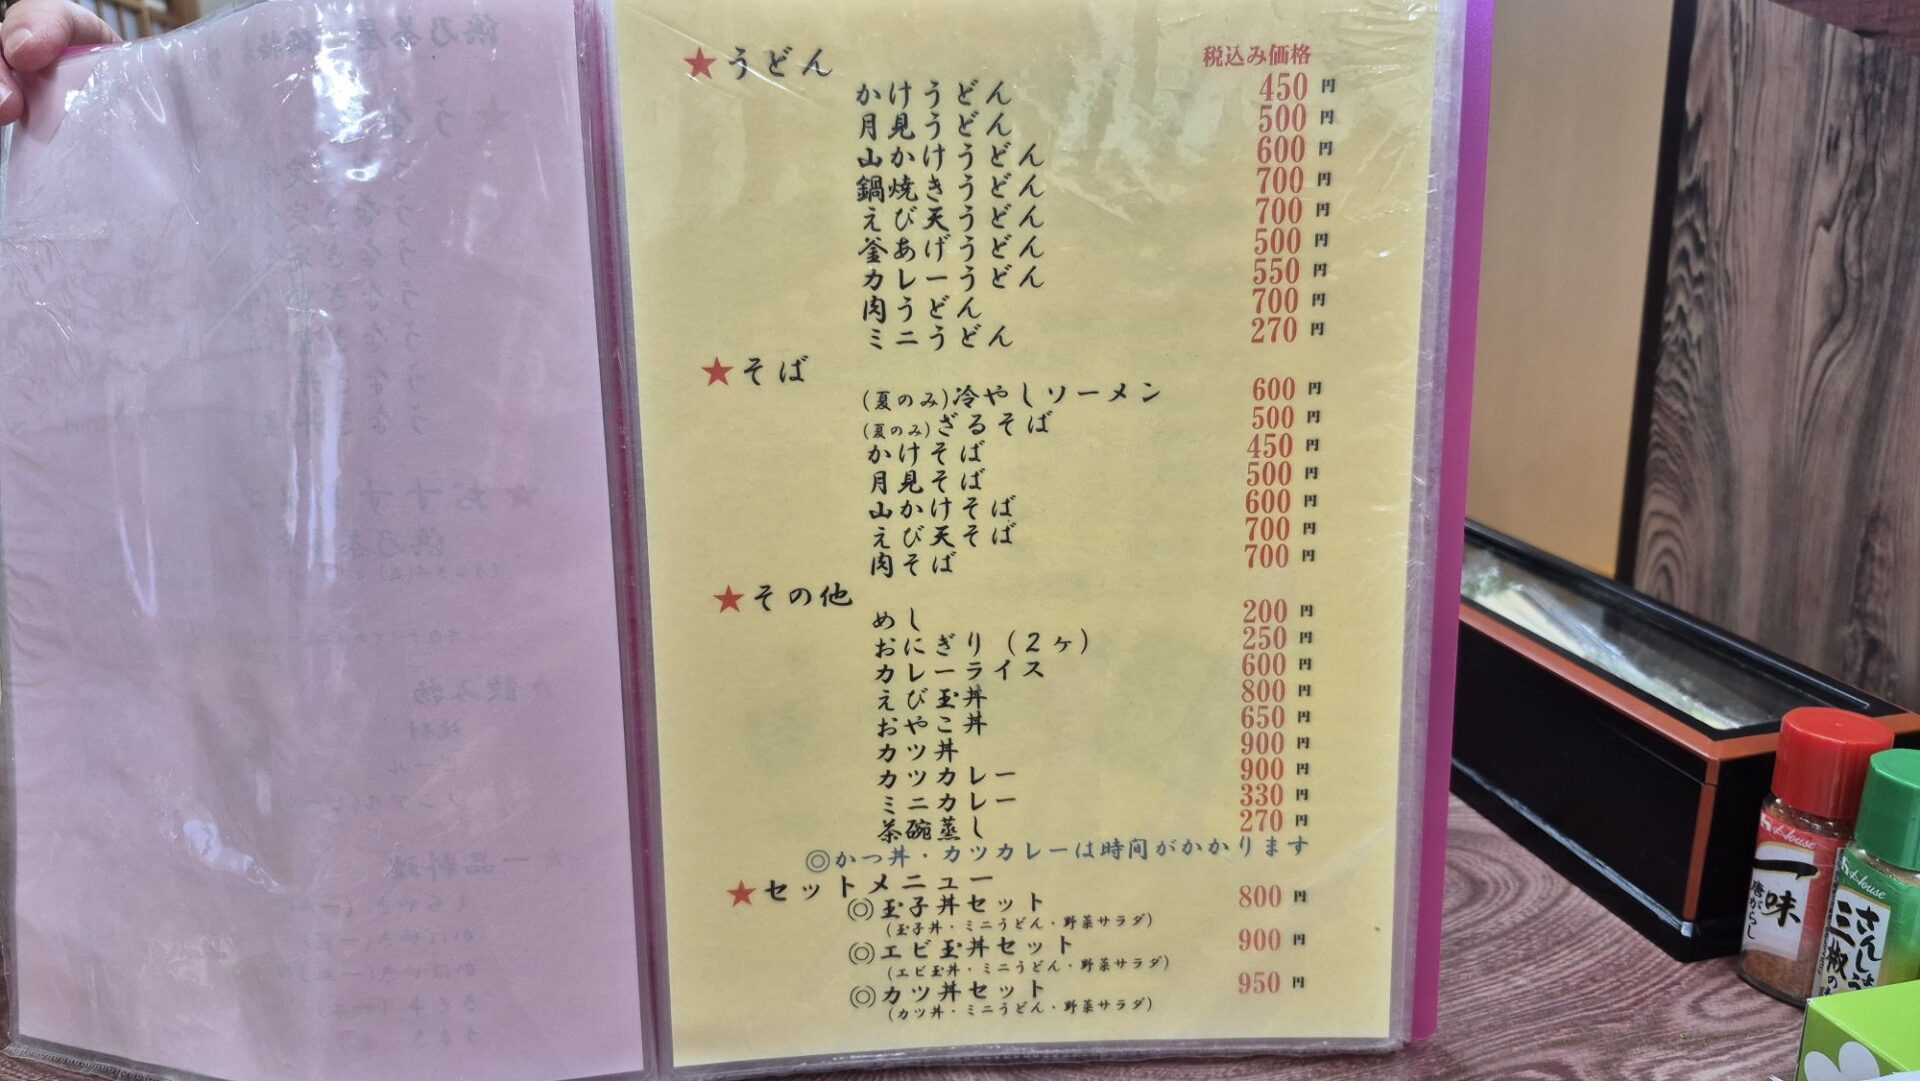 ★うどん 税込み価格
かけうどん 450 円
月見うどん 500 円
山かけうどん 600 円
鍋焼きうどん 700 円
えび天うどん 700 円
釜あげうどん 500 円
カレーうどん 550 円
肉うどん 700 円
ミニうどん 270 円
★そば
(夏のみ)冷やしソーメン 600 円
(夏のみ)ざるそば 500 円
かけそば 450 円
月見そば 500 円
山かけそば 600 円
えび天そば 700 円
肉そば 700 円
★その他
めし 200 円
おにぎり(2ヶ) 250 円
カレーライス 600 円
えび玉丼 800 円
おやこ丼 650 円
カツ丼 900 円
カツカレー 900 円
ミニカレー 330 円
茶碗蒸し 270 円
◎かつ丼・カツカレーは時間がかかります
★セットメニュー
◎玉子丼セット 800 円
(玉子丼・ミニうどん・野菜サラダ)
◎エビ玉丼セット 900 円
(エビ玉丼・ミニうどん・野菜サラダ)
◎カツ丼セット 950 円
(カツ丼・ミニうどん・野菜サラダ)
House
一味
唐がらし
House
さんしょう
山椒の